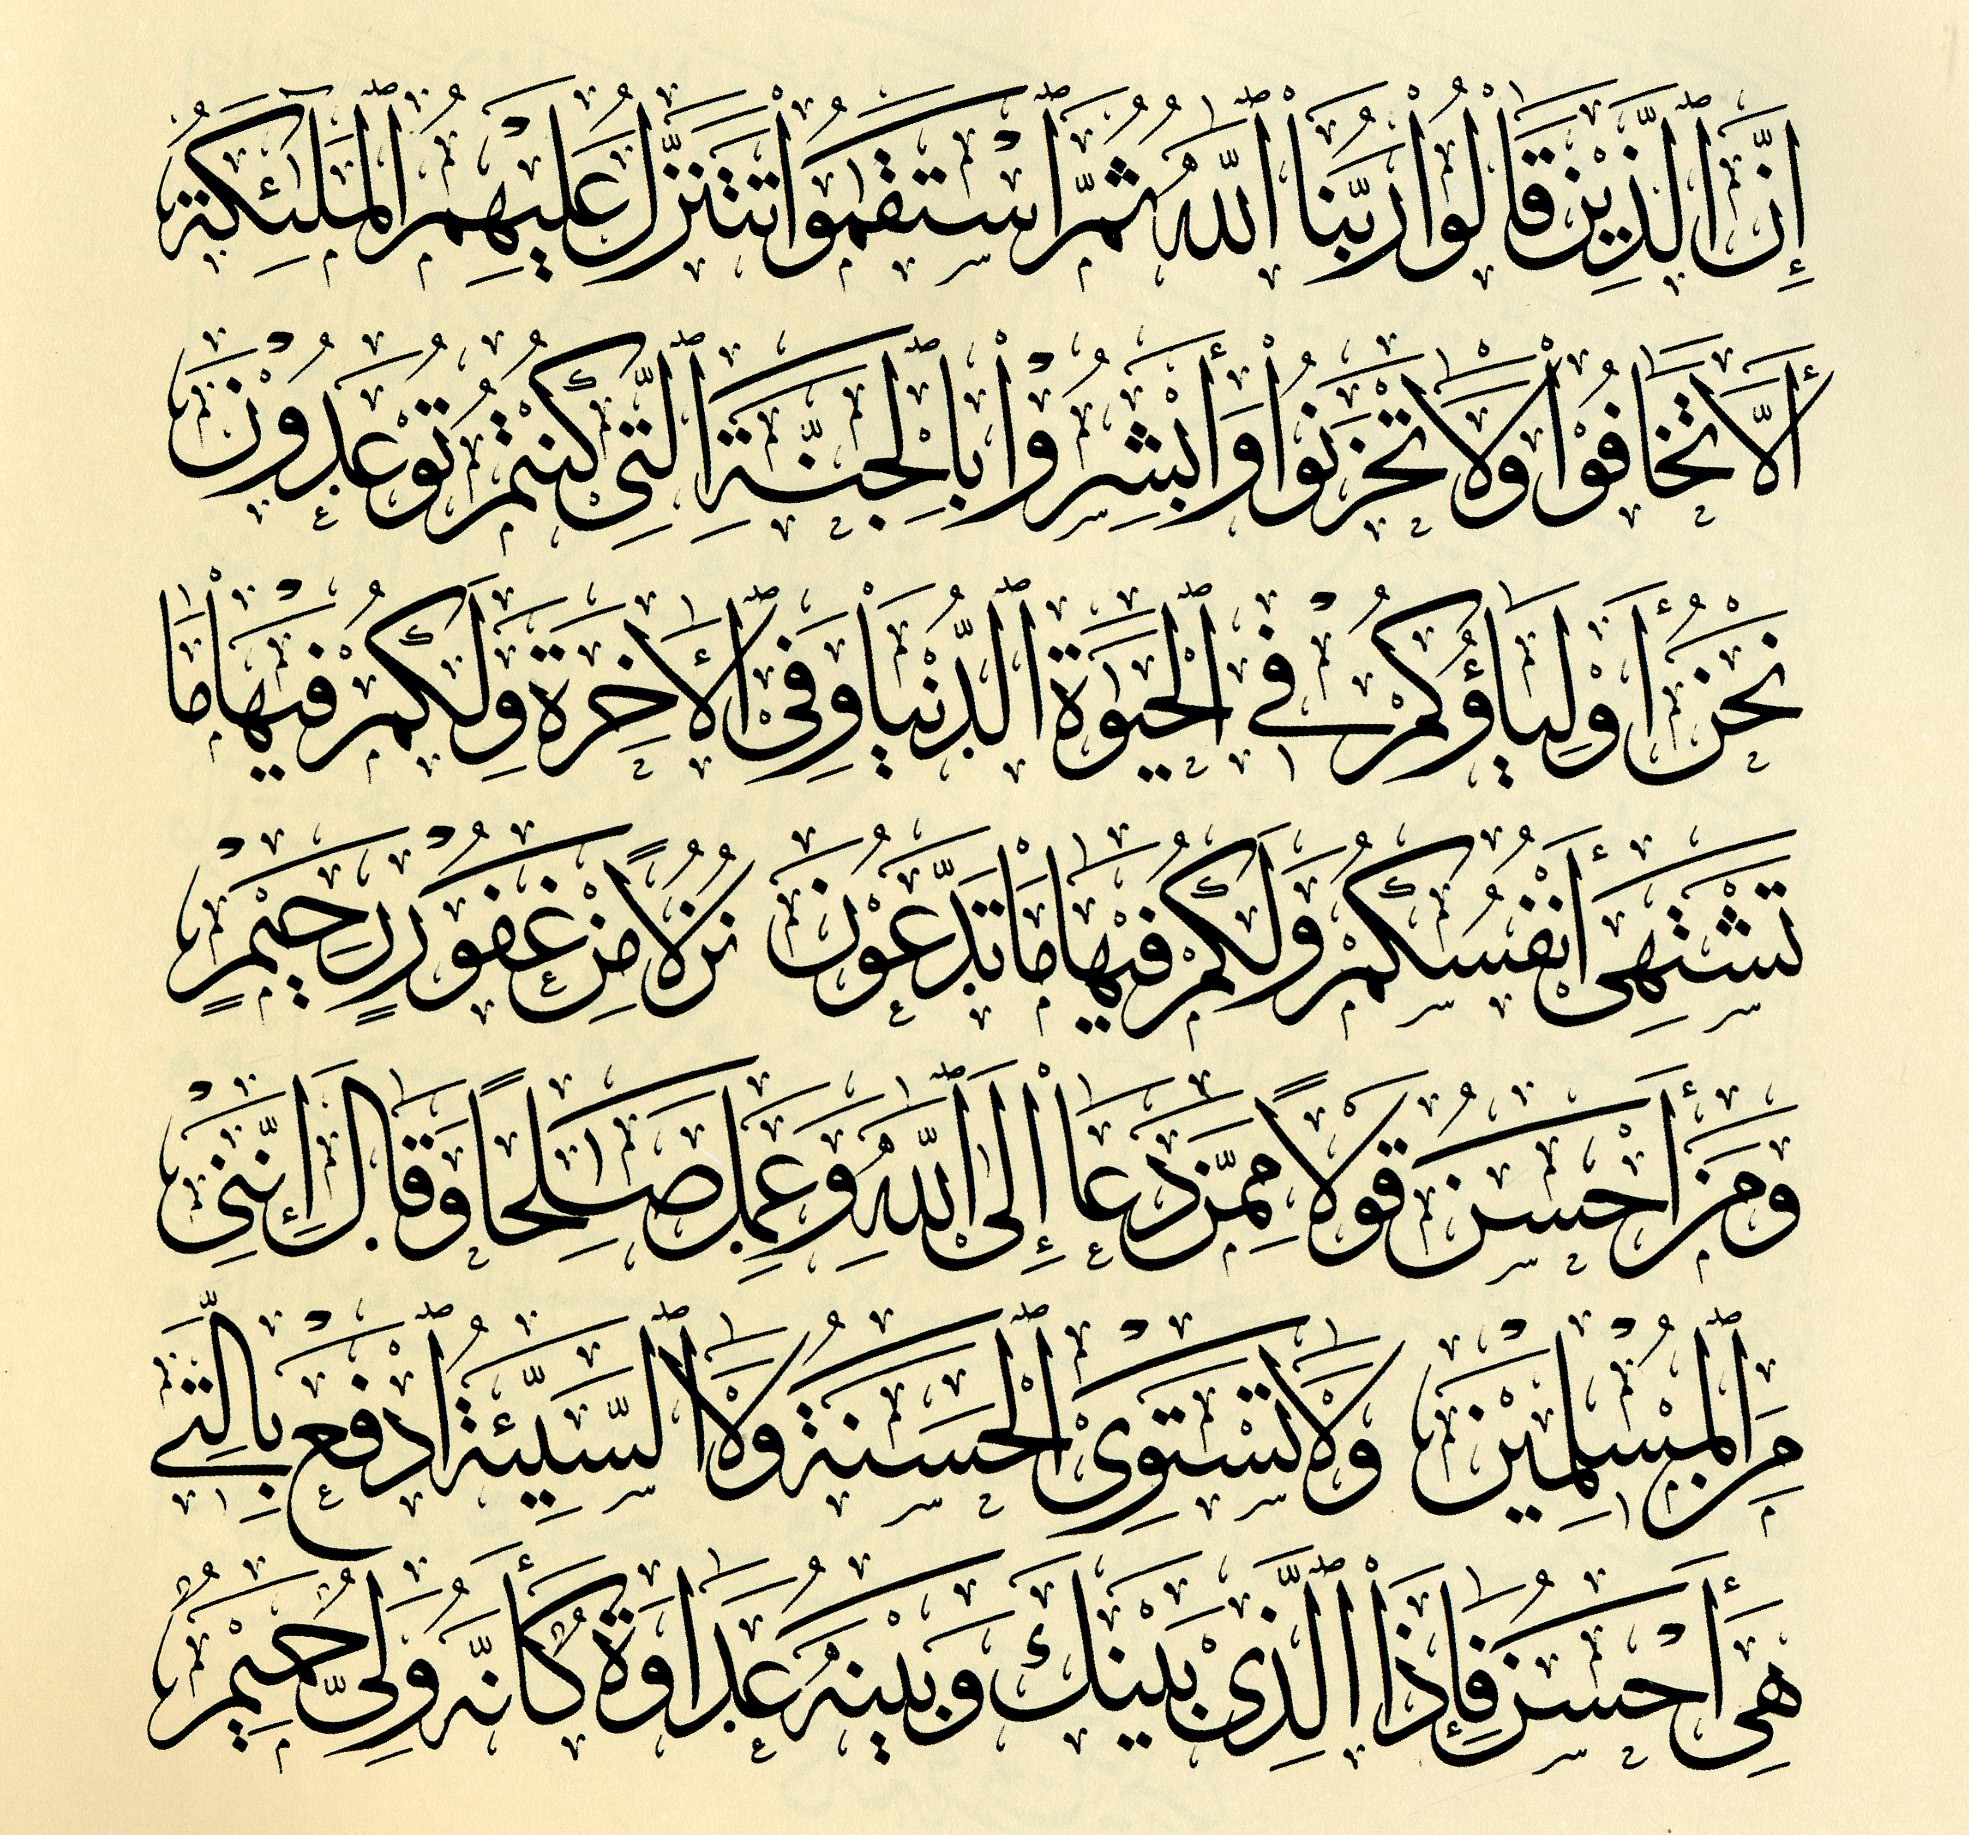 إِنَّ ٱلَّذِيْنَ قَالُوْا رَبُّنَا ٱللّٰهُ ثُمَّ ٱسْتَقٰمُوْا تَتَنَزَّلُ عَلَيْهِمُ ٱلْمَلٰٓئِكَةُ
أَلَّا تَخَافُوْا وَلَا تَحْزَنُوْا وَأَبْشِرُوْا بِٱلْجَنَّةِ ٱلَّتِيْ كُنْتُمْ تُوْعَدُوْنَ
نَحْنُ أَوْلِيَاؤُكُمْ فِي ٱلْحَيٰوةِ ٱلدُّنْيَا وَفِي ٱلْأٰخِرَةِ وَلَكُمْ فِيْهَا مَا
تَشْتَهِيْ أَنْفُسُكُمْ وَلَكُمْ فِيْهَا مَا تَدَّعُوْنَ نُزُلًا مِنْ غَفُوْرٍ رَحِيْمٍ
وَمَنْ أَحْسَنُ قَوْلًا مِمَّنْ دَعَا إِلَى ٱللّٰهِ وَعَمِلَ صٰلِحًا وَقَالَ إِنَّنِيْ
مِنَ ٱلْمُسْلِمِيْنَ وَلَا تَسْتَوِى ٱلْحَسَنَةُ وَلَا ٱلسَّيِّئَةُ ٱدْفَعْ بِالَّتِيْ
هِيَ أَحْسَنُ فَإِذَا ٱلَّذِيْ بَيْنَكَ وَبَيْنَهُ عَدَاوَةٌ كَأَنَّهُ وَلِيٌّ حَمِيْمٌ